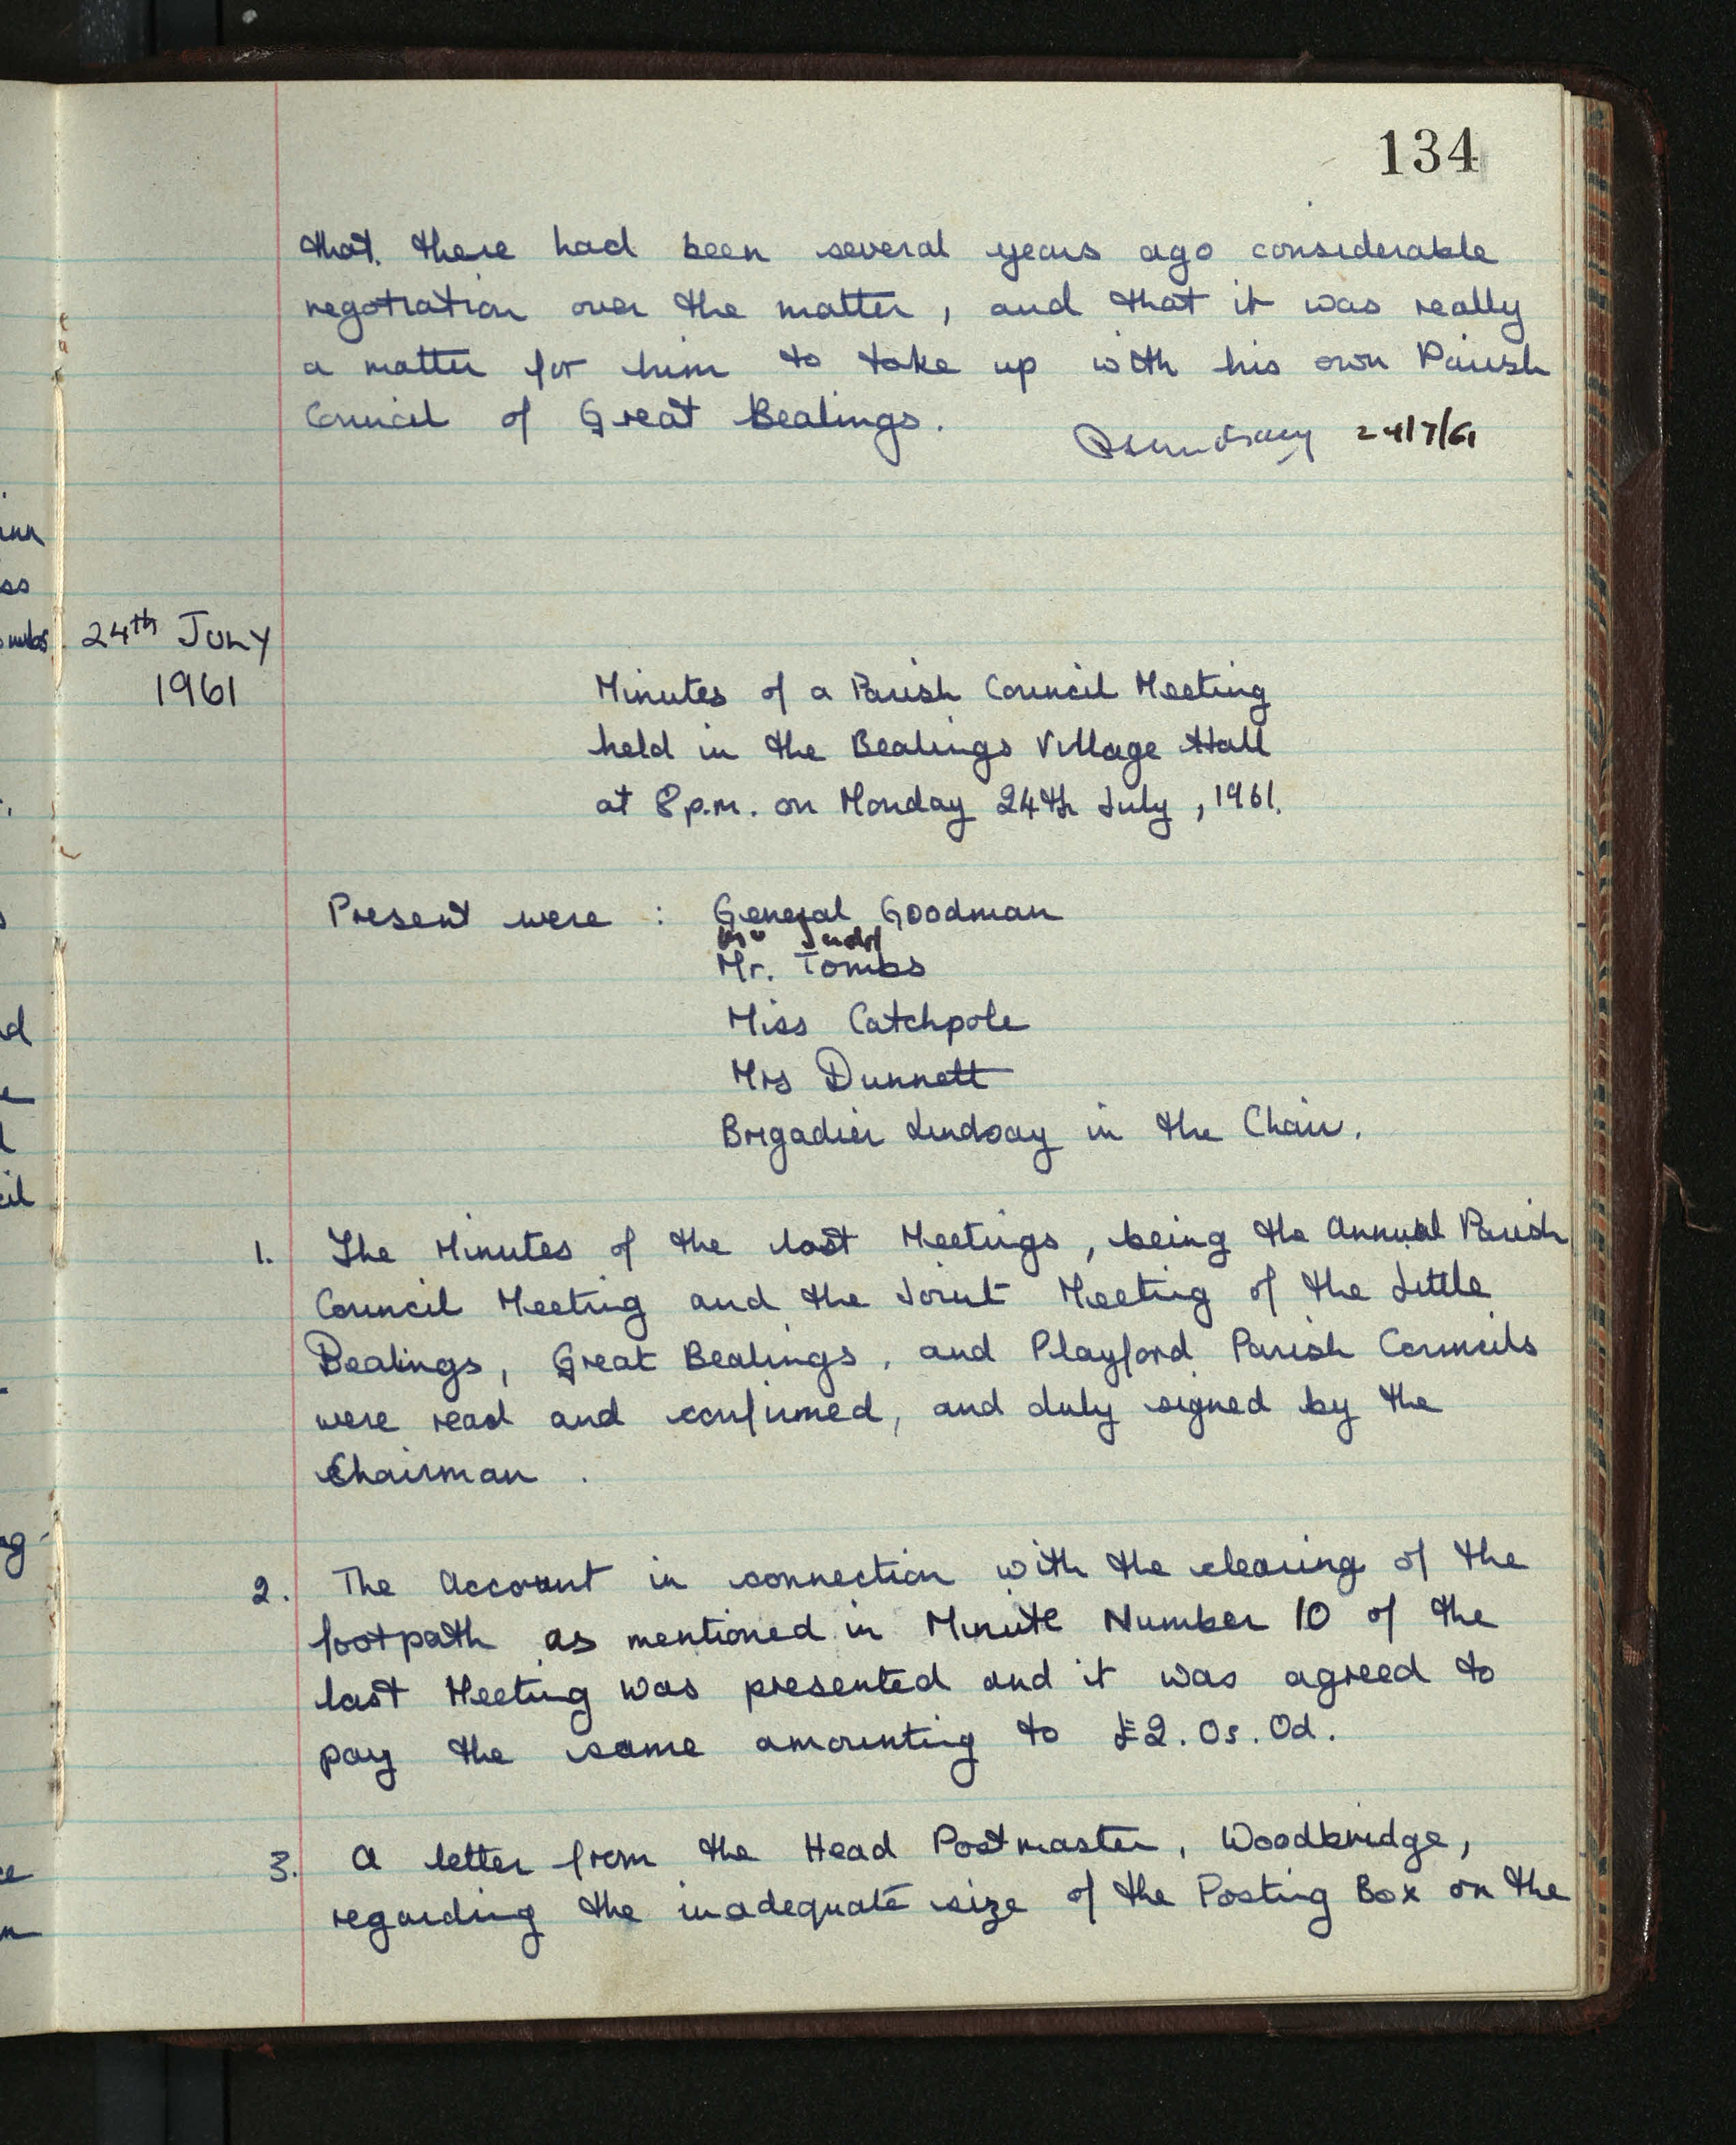 134
that there had been several years ago considerable
negotiation over the matter, and that it was really
a matter for him to take up with his own Parish
Council of Great Bealings.
24/7/61
24th July
1961
Minutes of a Parish Council Meeting
held in the Bealings Village Hall
at 8 p.m. on Monday 24th July, 1961.
Present were : General Goodman
Mr Judd
Mr. Tombs
Miss Catchpole
Mrs Dunnett
Brigadier Lindsay in the Chair.
1. The Minutes of the last Meetings, being the Annual Parish
Council Meeting and the Joint Meeting of the Little
Bealings, Great Bealings, and Playford Parish Councils
were read and confirmed, and duly signed by the
Chairman.
2. The Account in connection with the clearing of the
footpath as mentioned in Minute Number 10 of the
last Meeting was presented and it was agreed to
pay the same amounting to £2. 0s. 0d.
3. A letter from the Head Postmaster, Woodbridge,
regarding the inadequate size of the Posting Box on the